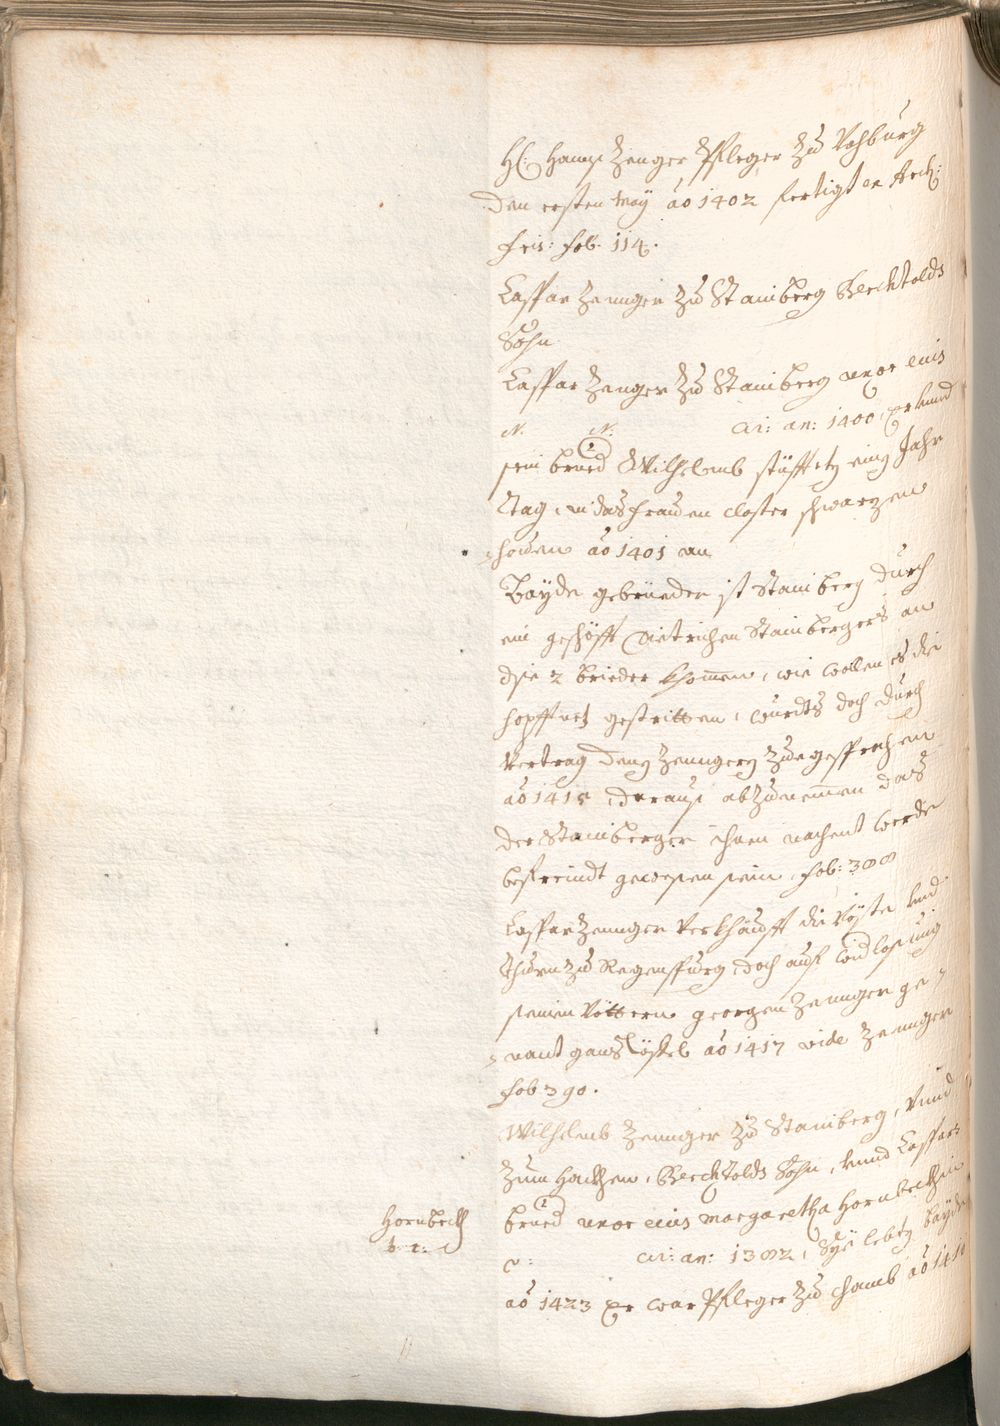 H: Hanns Zenger Pfleger zu Vohburg
den ersten May ao 1402 fertigt er Arch:
Fris: fol. 114.
Caspar Zennger zu Stamberg Berchtolds
Sohn
Caspar Zenger zu Stamberg uxor eius
N. N: Cir: an: 1400, er unnd
sein brued Wilhelmb stüfften ein Jahr
Tag, in das frauen Closter schwarzen
hoven ao 1401 an
Bayde gebrüeder ist Stamberg durch
ein geschöfft Dietrichen Stambergers an
die 2 brieder khommen, wie wollen es die
gestritten, wurdts doch durch
Vertrag den Zenngern zuegesprochen
ao 1415, darauß abzunemmen das
der Stamberger ihnen nachent werde
befreindt gewesen sein, fol: 388
Caspar Zennger verkhaufft die Vöste und
Thurn zu Regenspurg, doch auf widlosung
seinem Vöttern georgen Zennger ge=
=nant ao 1417 vide Zennger
fol 390.
Wilhelmb Zennger zu Stamberg, Unnd
zum Hackhen, Berchtolds Sohn, unnd Caspars
brued uxor eius Margaretha Hornbeckhin
N: Cir: an: 1382, Sye lebten bayde
Hornbeckh
b. t:
ao 1423 Er war Pfleger zu Chamb ao 1410